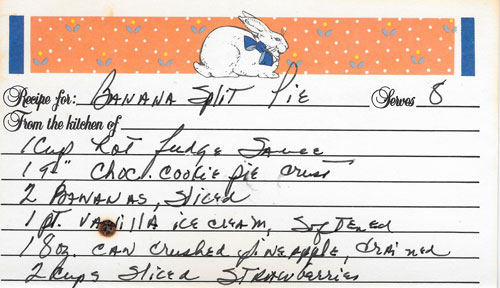 Recipe for: Banana Split Pie Serves 8
From the kitchen of
1 Cup hot fudge Sauce
1 9" Choc. cookie pie crust
2 Bananas, sliced
1 pt. vanilla ice cream, softened
1 8 oz. can crushed pineapple, drained
2 cups sliced strawberries